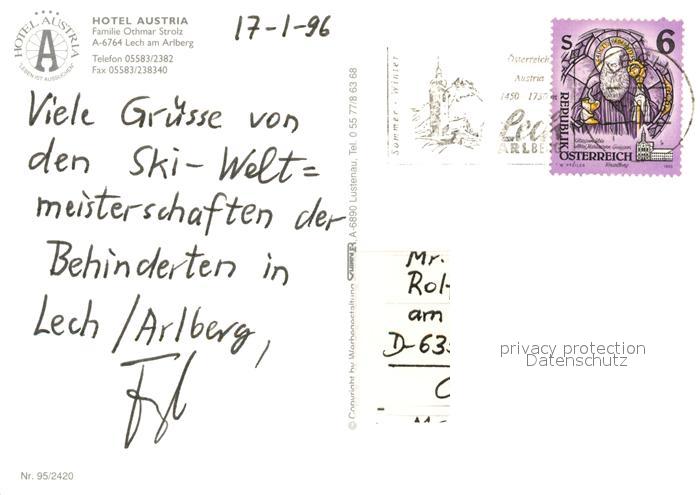 HOTEL AUSTRIA
"LEBEN IST AUSBLICKEN"
HOTEL AUSTRIA
Familie Othmar Strolz
A-6764 Lech am Arlberg
Telefon 05583/2382
Fax 05583/238340
17-1-96
Viele Grüsse von
den Ski-Welt=
meisterschaften der
Behinderten in
Lech/Arlberg,
Nr. 95/2420
A-6890 Lustenau, Tel. 0 55 77/8 63 68
© Copyright by Werbegestaltung
Sommer · Winter
Österreich
Austria
1450 1750 m
Lech
ARLBERG
S 6
REPUBLIK
ÖSTERREICH
Mr.
Rol
am
D-63
privacy protection
Datenschutz